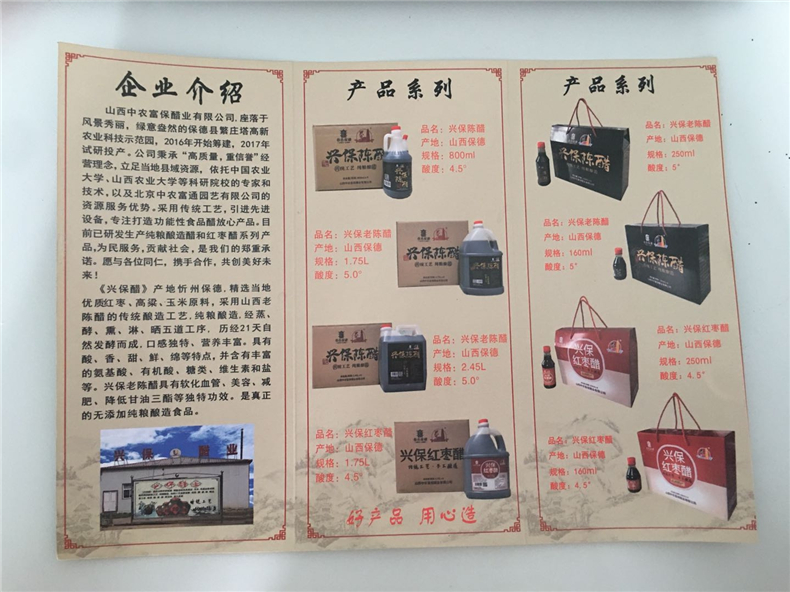 企业介绍
山西中农富保醋业有限公司,座落于
风景秀丽，绿意盎然的保德县繁庄塔高新
农业科技示范园，2016年开始筹建，2017年
试研投产。公司秉承“高质量，重信誉”经
营理念，立足当地县域资源，依托中国农业
大学、山西农业大学等科研院校的专家和
技术，以及北京中农富通园艺有限公司的
资源服务优势，采用传统工艺，引进先进
设备，专注打造功能性食品醋放心产品。目
前已研发生产纯粮酿造醋和红枣醋系列产
品，为民服务，贡献社会，是我们的郑重承
诺。愿与各位同仁，携手合作，共创美好未
来！
《兴保醋》产地忻州保德，精选当地
优质红枣、高粱、玉米原料，采用山西老
陈醋的传统酿造工艺，纯粮酿造，经蒸、
酵、熏、淋、晒五道工序，历经21天自
然发酵而成，口感独特、营养丰富。具有
酸、香、甜、鲜、绵等特点，并含有丰富
的氨基酸、有机酸、糖类、维生素和盐
等。兴保老陈醋具有软化血管、美容、减
肥、降低甘油三酯等独特功效。是真正
的无添加纯粮酿造食品。
兴保醋业
产品系列
兴保陈醋
品名：兴保陈醋
产地：山西保德
规格：800ml
酸度：4.5°
兴保陈醋
品名：兴保老陈醋
产地：山西保德
规格：1.75L
酸度：5.0°
兴保陈醋
品名：兴保老陈醋
产地：山西保德
规格：2.45L
酸度：5.0°
兴保红枣醋
品名：兴保红枣醋
产地：山西保德
规格：1.75L
酸度：4.5°
好产品 用心造
产品系列
兴保老陈醋
品名：兴保老陈醋
产地：山西保德
规格：250ml
酸度：5°
品名：兴保老陈醋
产地：山西保德
规格：160ml
酸度：5°
兴保陈醋
兴保红枣醋
品名：兴保红枣醋
产地：山西保德
规格：250ml
酸度：4.5°
品名：兴保红枣醋
产地：山西保德
规格：160ml
酸度：4.5°
兴保红枣醋